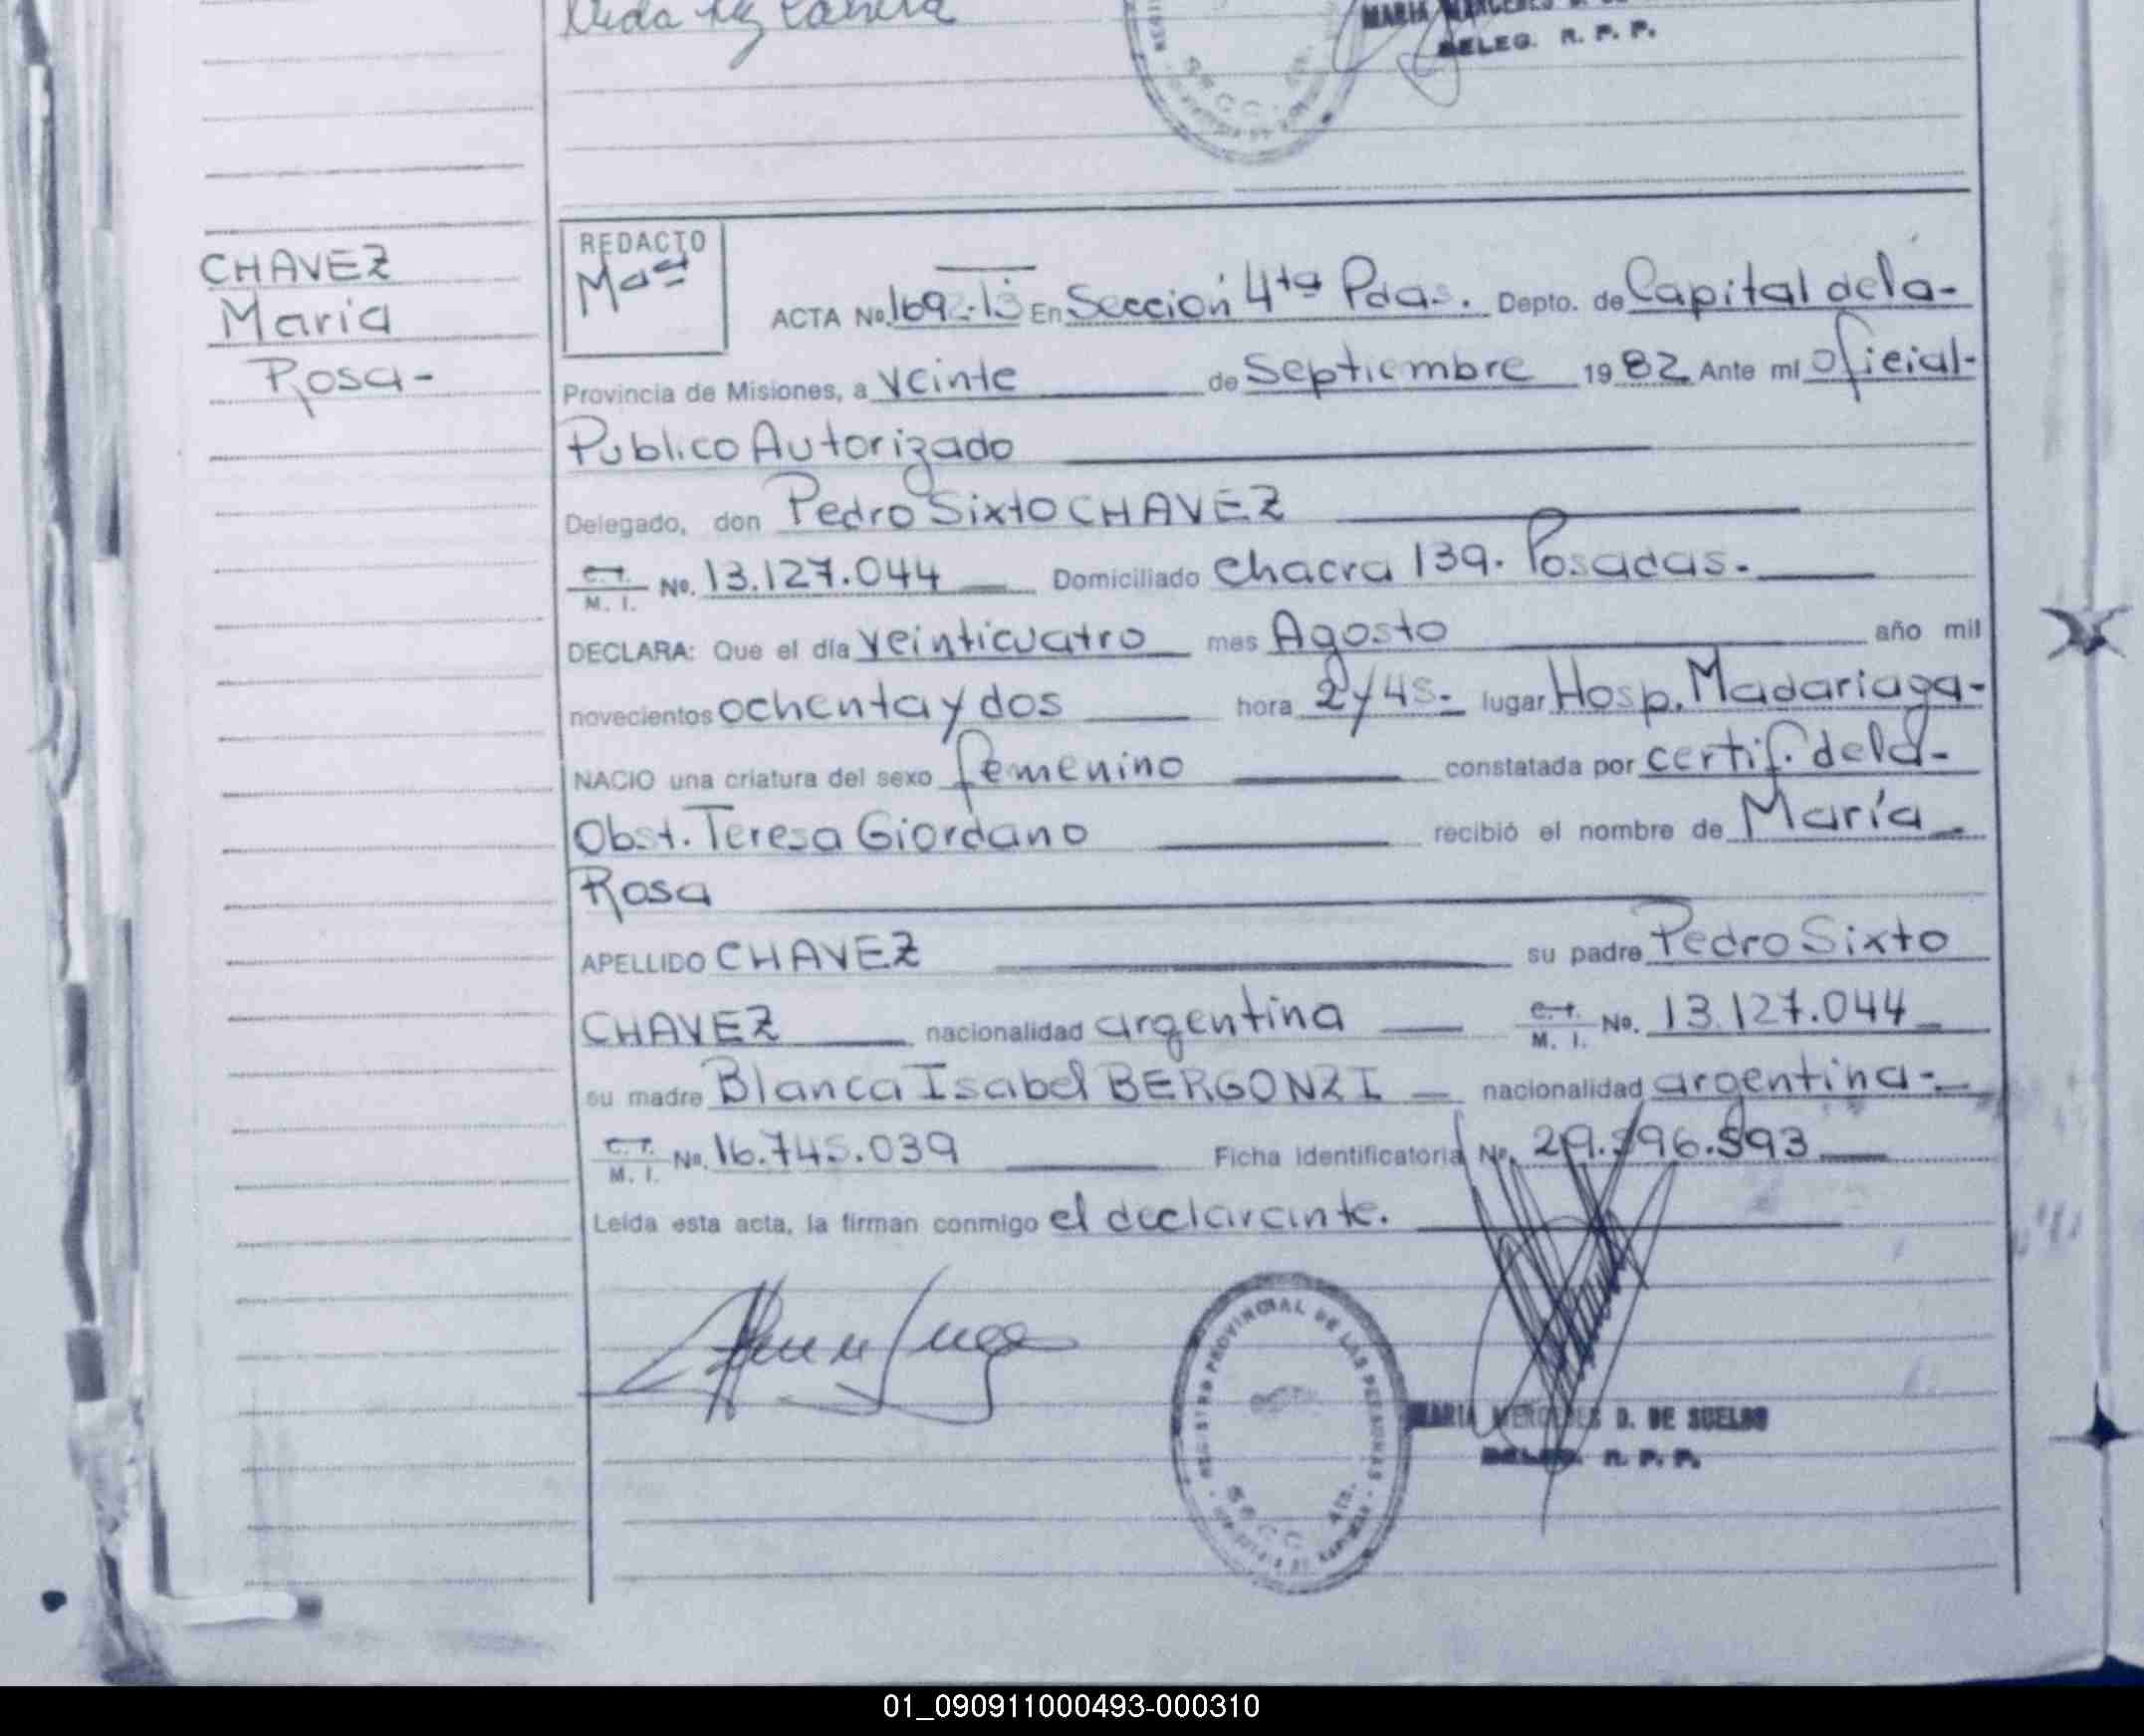 MARIA MERCEDES D. DE
DELEG. R. P. P.
CHAVEZ
María
Rosa-
REDACTO
Mª
ACTA Nº 1692-13 En Sección 4ta Pdas. Depto. de Capital de la-
Provincia de Misiones, a veinte de Septiembre 1982 Ante mí Oficial-
Público Autorizado
Delegado, don Pedro Sixto CHAVEZ
C. I. M. I. No. 13.127.044 Domiciliado Chacra 139. Posadas.-
DECLARA: Que el día veinticuatro mes Agosto año mil
novecientos ochenta y dos hora 2 y 45.- lugar Hosp. Madariaga-
NACIO una criatura del sexo femenino constatada por certif. de la-
Obst. Teresa Giordano recibió el nombre de María
Rosa
APELLIDO CHAVEZ su padre Pedro Sixto
CHAVEZ nacionalidad argentina C. I. M. I. No. 13.127.044
su madre Blanca Isabel BERGONZI nacionalidad argentina.-
C. I. M. I. No. 16.745.039 Ficha identificatoria No. 29.596.593
Leída esta acta, la firman conmigo el declarante.
REGISTRO PROVINCIAL DE LAS PERSONAS
SECC. 4ta.
MARIA MERCEDES D. DE SUELDO
DELEG. R. P. P.
01_090911000493-000310